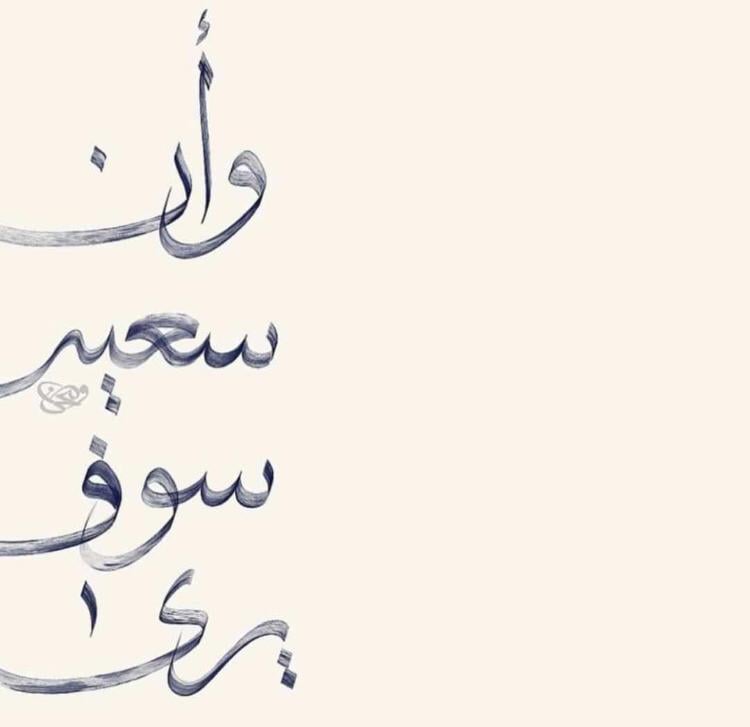 وأن
سعيه
سوف
يرىٰ